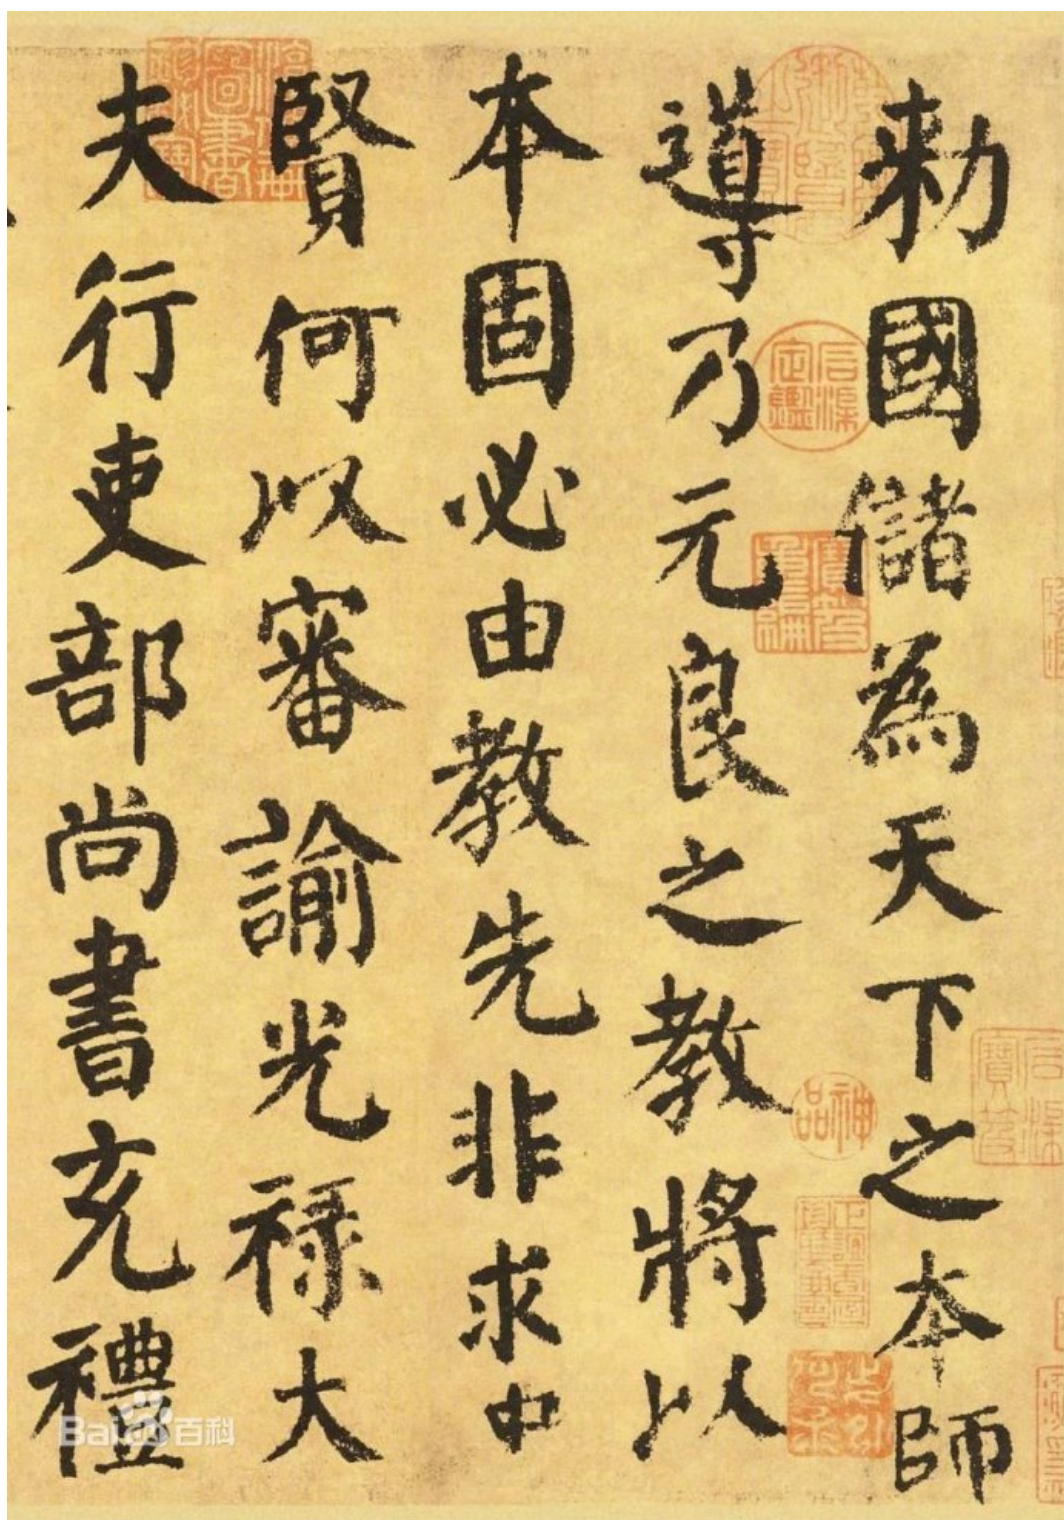 勑國儲為天下之本師
導乃元良之教將以
本固必由教先非求中
賢何以審諭光禄大
夫行吏部尚書充禮
神品
Baidu百科